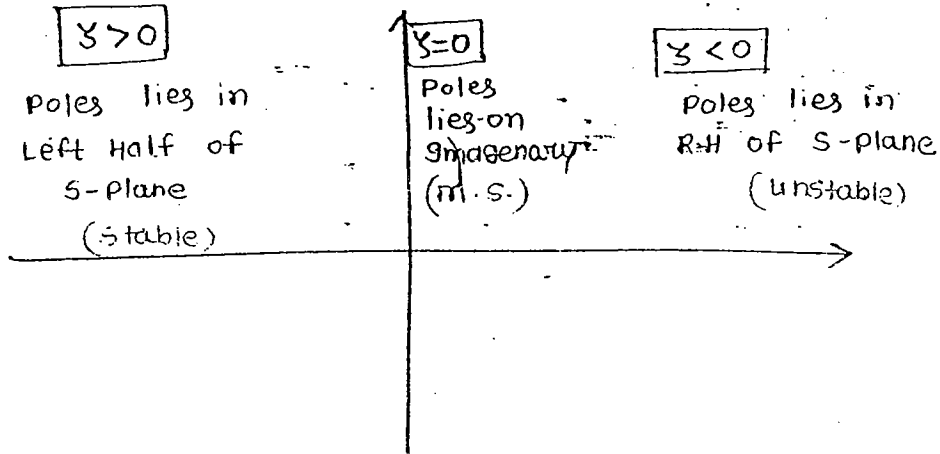 ξ>0
Poles lies in
Left Half of
S-Plane
(stable)
ξ=0
Poles
lies on
Imagenary
(m.s.)
ξ<0
Poles lies in
R.H of S-plane
(unstable)